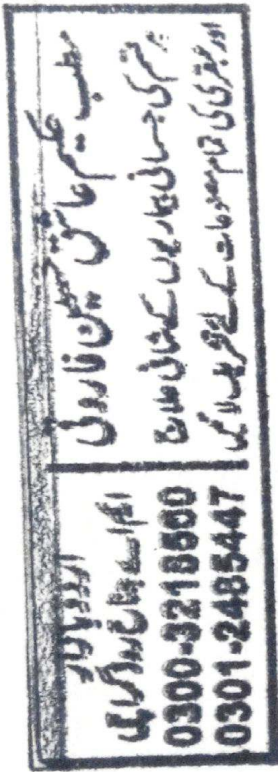 مطب حکیم عاشق حسین فاروقی
ہر قسم کی جسمانی بیماریوں کے شافی علاج
اور عبقری کی تمام مصنوعات کے لئے تشریف لائیں
اردو بازار
ایم اے جناح روڈ کراچی
0300-3218560
0301-2485447